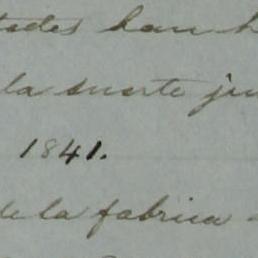 tades han h
la suerte ju
1841.
de la fabrica